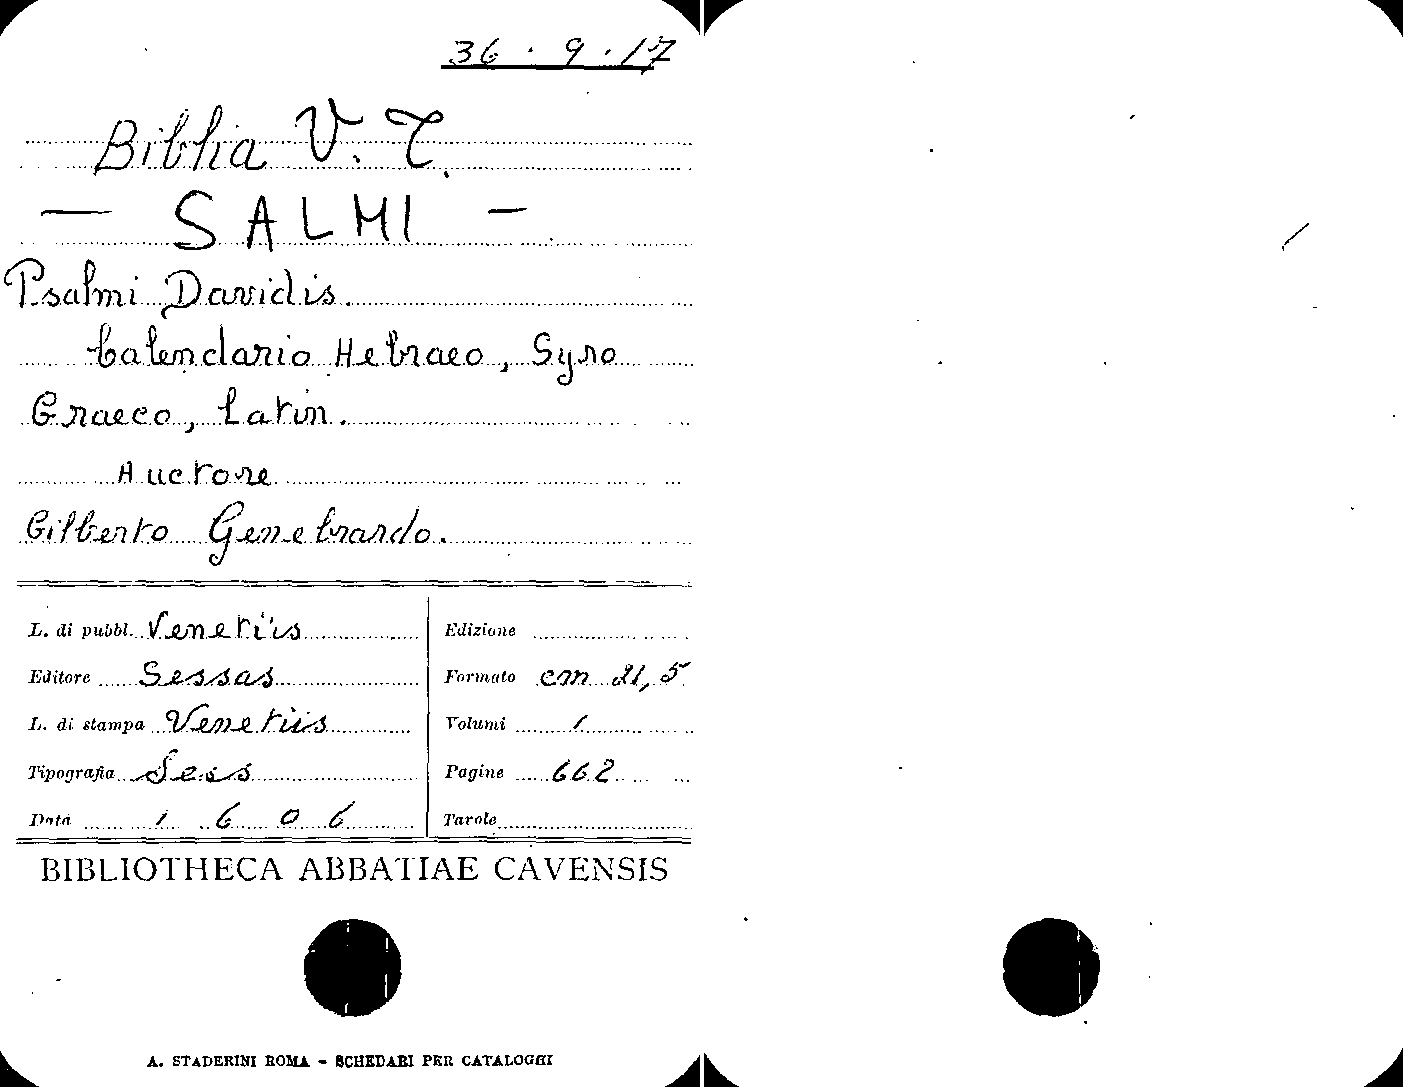 36 · 9 · 17
Biblia V. T.
— SALMI —
Psalmi Davidis.
Calendario Hebraeo, Syro
Graeco, Latin.
Auctore
Gilberto Genebrardo.
L. di pubbl. Venetiis
Editore Sessas
L. di stampa Venetiis
Tipografia
Data 1606
Edizione
Formato cm 21,5
Volumi 1
Pagine 662
Tavole
BIBLIOTHECA ABBATIAE CAVENSIS
A. STADERINI ROMA - SCHEDARI PER CATALOGHI